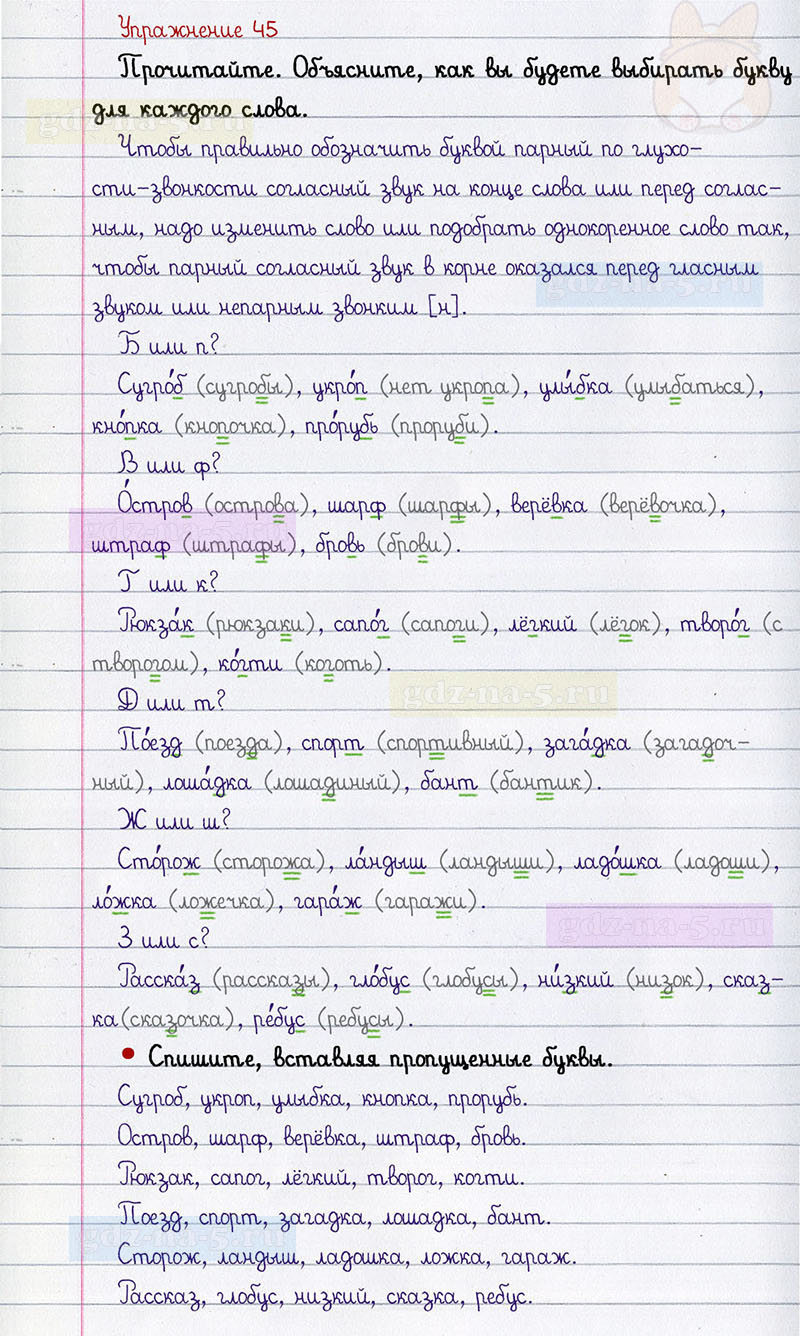 Упражнение 45
Прочитайте. Объясните, как вы будете выбирать букву
для каждого слова.
gdz-na-5.ru
Чтобы правильно обозначить буквой парный по глухо-
сти-звонкости согласный звук на конце слова или перед соглас-
ным, надо изменить слово или подобрать однокоренное слово так,
чтобы парный согласный звук в корне оказался перед гласным
gdz-na-5.ru
звуком или непарным звонким [н].
Б или п?
Сугро́б (сугробы), укро́п (нет укропа), улы́бка (улыбаться),
кно́пка (кнопочка), про́рубь (проруби).
В или ф?
О́стров (острова), шарф (шарфы), верёвка (верёвочка),
gdz-na-5.ru
штраф (штрафы), бровь (брови).
Г или к?
Рюкза́к (рюкзаки), сапо́г (сапоги), лёгкий (лёгок), творо́г (с
творогом), ко́гти (коготь).
gdz-na-5.ru
Д или т?
По́езд (поезда), спорт (спортивный), зага́дка (загадоч-
ный), лоша́дка (лошадиный), бант (бантик).
Ж или ш?
Сто́рож (сторожа), ла́ндыш (ландыши), ладо́шка (ладоши),
ло́жка (ложечка), гара́ж (гаражи).
gdz-na-5.ru
З или с?
Расска́з (рассказы), гло́бус (глобусы), ни́зкий (низок), сказ-
ка(сказочка), ре́бус (ребусы).
• Спишите, вставляя пропущенные буквы.
Сугроб, укроп, улыбка, кнопка, прорубь.
Остров, шарф, верёвка, штраф, бровь.
Рюкзак, сапог, лёгкий, творог, когти.
Поезд, спорт, загадка, лошадка, бант.
gdz-na-5.ru
Сторож, ландыш, ладошка, ложка, гараж.
Рассказ, глобус, низкий, сказка, ребус.